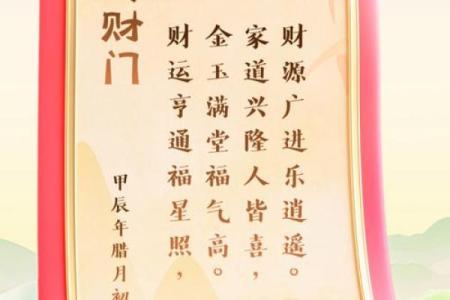 财门
甲辰年腊月初
财运亨通福星照，
金玉满堂福气高。
家道兴隆人皆喜，
财源广进乐逍遥。